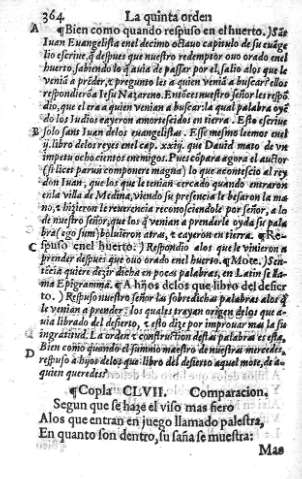 364 La quinta orden
A ¶Bien como quando respuso en el huerto.) Sāt
Iuan Euangelista enel decimo octauo capitulo de su euāge
lio escriue, q̃ despues que nuestro redemptor ouo orado enel
huerto, sabiendo lo q̃ auia de passar por el, salio alos que le
veniā a prēder, e pregunto les a quien veniā a buscar? ellos
respondierōa Iesu Nazareno. Entōces nuestro señor les respō
dio, que el era a quien venian a buscar: la qual palabra oyē
do los Iudios cayeron amortescidos en tierra. Esto escriue
B solo sant Iuan delos euangelistas. Esse mismo leemos enel
ij. libro de los reyes enel cap. xxiij. que Dauid mato de vn
impetu ochocientos enemigos. Pues cōpara agora el auctor
(si licet parua componere magna) lo que acontescio al rey
don Iuan, que los que le tenian cercado quando entraron
enla villa de Medina, viendo su presencia le besaron la ma
no, e hizieron le reuerencia reconosciendole por señor, a lo
de nuestro señor, que los que venian a prenderle oyda su pala
bra: ego sum: boluieron atras, e cayeron en tierra. ¶Re-
C spuso enel huerto.) Respondio alos que le vinieron a
prender despues que ouo orado enel huerto. ¶Mote.) Sen
tēcia quiere dezir dicha en pocas palabras, en Latin se lla-
ma Epigramma. ¶A hijos delos que libro del desier
to.) Respuso nuestro señor las sobredichas palabras alos q̃
le venian a prender: los quales trayan origen delos que a-
uia librado del desierto, e esto dize por improuar mas la su
ingratitud. La orden e construction destas palabras es esta.
D Bien como quando el summo maestro de nuestras mercedes
respuso a hijos delos que libro del desierto aquel mote, de a-
quien queredes?
¶Copla CLVII. Comparacion.
Segun que se haze el viso mas fiero
Alos que entran en juego llamado palestra,
En quanto son dentro, su saña se muestra:
Mas